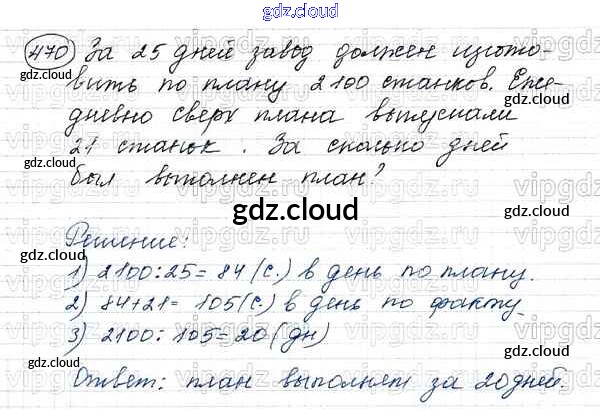 gdz.cloud
470 За 25 дней завод должен изгото-
gdz.cloud
gdz.cloud
вить по плану 2100 станков. Еже-
дневно сверх плана выпускали
21 станок. За сколько дней
gdz.cloud
gdz.cloud
был выполнен план?
gdz.cloud
Решение:
1) 2100:25=84(с.) в день по плану.
gdz.cloud
gdz.cloud
2) 84+21=105(с.) в день по факту
3) 2100:105=20(дн)
gdz.cloud
gdz.cloud
Ответ: план выполнят за 20 дней.